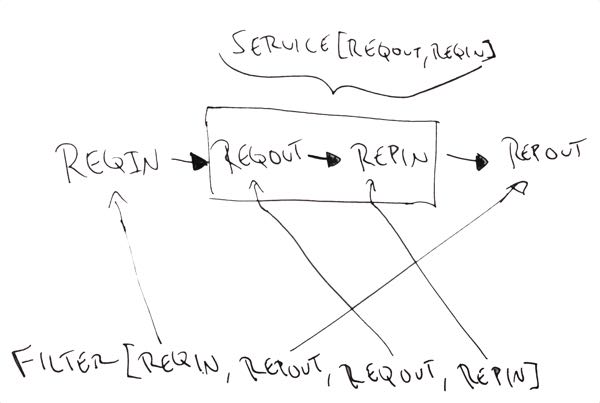 SERVICE[REQOUT, REQIN]
REQIN → REQOUT → REPIN → REPOUT
FILTER[REQIN, REPOUT, REQOUT, REPIN]